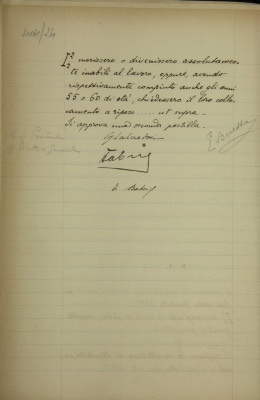 I² morissero o divenissero assolutamen-
te inabili al lavoro, eppure, avendo
rispettivamente compiuto anche gli anni
55 o 60 di età, chiedessero il loro collo-
camento a riposo ..... ut supra -
Si approva una seconda postilla -
G Salvadori
E Beretta
Fabris